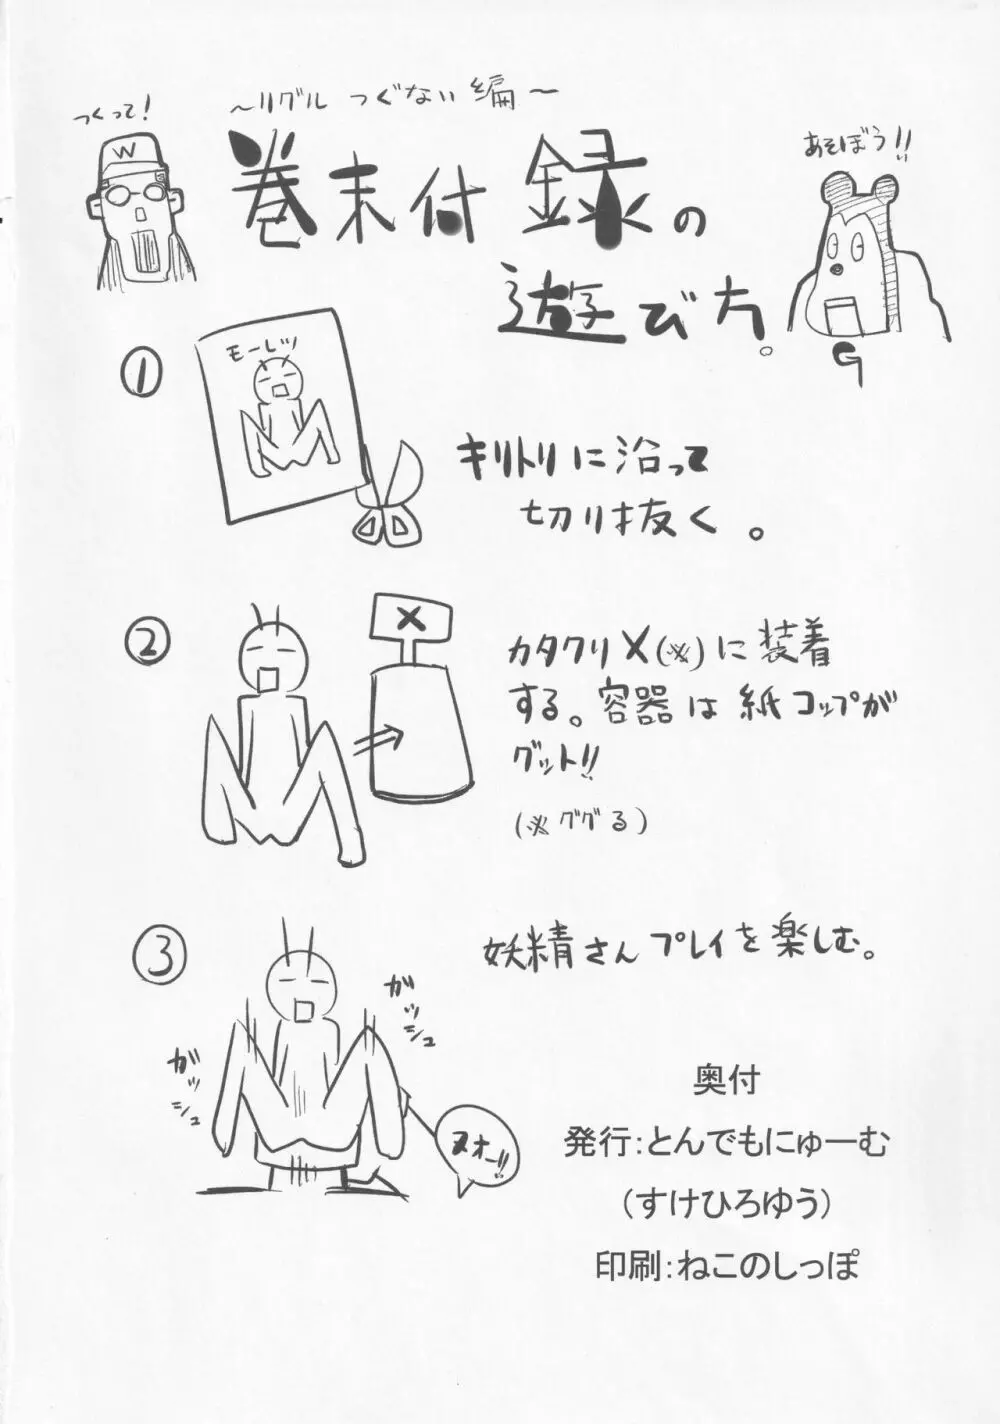 ～リグル つぐない編～
つくって!
W
巻末付録の
遊び方。
あそぼう!!
G
①
モーレツ
キリトリに沿って
切り抜く。
②
X
カタクリX(※)に装着
する。容器は紙コップが
グット!!
(※ググる)
③
妖精さんプレイを楽しむ。
ガッシュ
ガッシュ
ヌオー!!
奥付
発行：とんでもにゅーむ
（すけひろゆう）
印刷：ねこのしっぽ